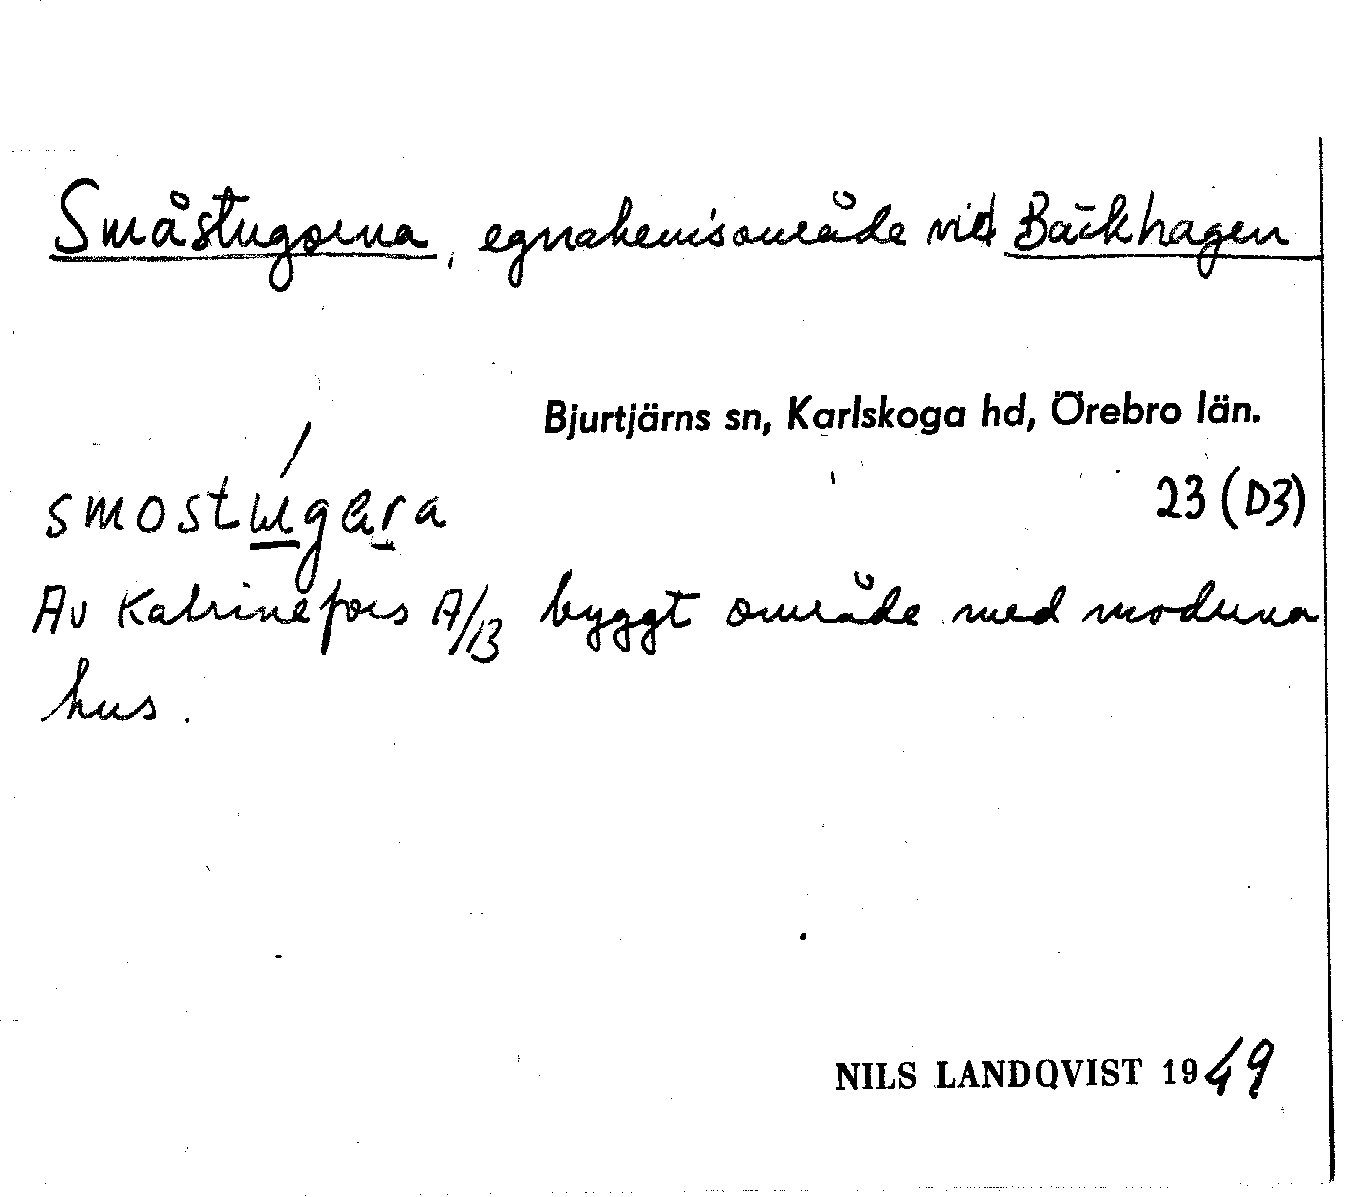 Småstugorna, egnahemsområde vid Bäckhagen
Bjurtjärns sn, Karlskoga hd, Örebro län.
smostúgara
23 (D3)
Av Katrinefors A/B byggt område med moderna
hus.
NILS LANDQVIST 1949